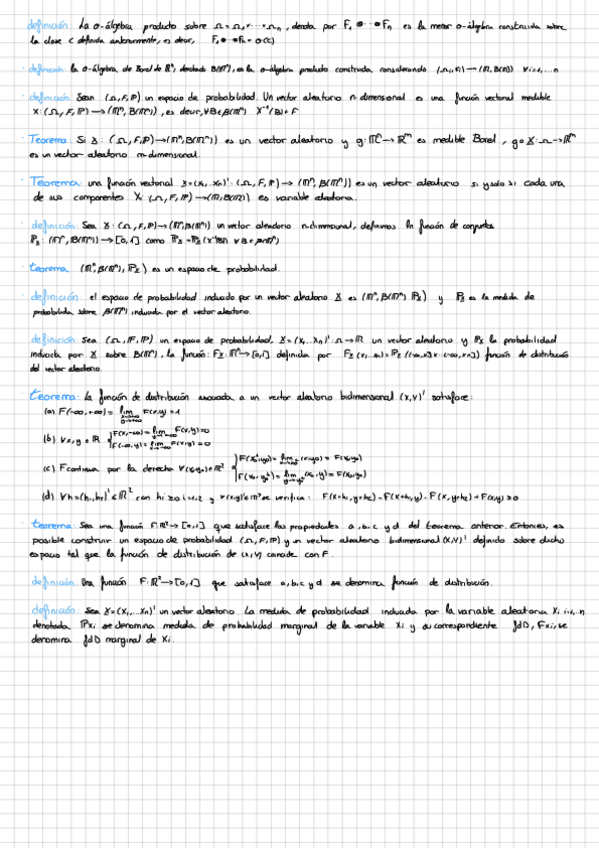 definición: La σ-álgebra producto sobre Ω = Ω₁ x ... x Ωn, denota por F₁ ⊗ ... ⊗ Fn es la menor σ-álgebra construida sobre
la clase C definida anteriormente, es decir, F₁ ⊗ ... ⊗ Fn = σ(C)
definición: la σ-álgebra de Borel de ℝⁿ, denotado B(ℝⁿ), es la σ-álgebra producto construida considerando (Ωi, Fi) → (ℝ, B(ℝ)) ∀i=1,...n
definición: Sean (Ω, F, P) un espacio de probabilidad. Un vector aleatorio n-dimensional es una función vectorial medible
X: (Ω, F, P) → (ℝⁿ, B(ℝⁿ)), es decir, ∀B∈B(ℝⁿ) X⁻¹(B) ∈ F
Teorema: Si X: (Ω, F, P) → (ℝⁿ, B(ℝⁿ)) es un vector aleatorio y g: ℝⁿ → ℝᵐ es medible Borel, g∘X: Ω → ℝᵐ
es un vector aleatorio m-dimensional.
Teorema: una función vectorial X = (X₁,...Xn)': (Ω, F, P) → (ℝⁿ, B(ℝⁿ)) es un vector aleatorio si y solo si cada una
de sus componentes Xi: (Ω, F, P) → (ℝ, B(ℝ)) es variable aleatoria.
definición: Sea X: (Ω, F, P) → (ℝⁿ, B(ℝⁿ)) un vector aleatorio n-dimensional, definimos la función de conjuntos
P_X: (ℝⁿ, B(ℝⁿ)) → [0,1] como P_X = P_X (X⁻¹(B)) ∀B∈B(ℝⁿ)
teorema (ℝⁿ, B(ℝⁿ), P_X) es un espacio de probabilidad.
definición: el espacio de probabilidad inducido por un vector aleatorio X es (ℝⁿ, B(ℝⁿ) P_X) y P_X es la medida de
probabilidad sobre B(ℝⁿ) inducida por el vector aleatorio.
definición: sea (Ω, F, P) un espacio de probabilidad, X = (X₁,...Xn)': Ω → ℝ un vector aleatorio y P_X la probabilidad
inducida por X sobre B(ℝⁿ), la función: F_X: ℝⁿ → [0,1] definida por F_X (x₁,...xn) = P_X ((-∞,x₁] x ... (-∞,xn]) función de distribución
del vector aleatorio.
teorema: La función de distribución asociada a un vector aleatorio bidimensional (X,Y)' satisface:
(a) F(-∞,+∞) = lim x→+∞ y→+∞ F(x,y) = 1
(b) ∀x,y ∈ ℝ { F(x,-∞) = lim y→-∞ F(x,y) = 0
F(-∞,y) = lim x→-∞ F(x,y) = 0
(c) F continua por la derecha ∀(x₀,y₀)∈ℝ² { F(x₀⁺,y₀) = lim x→x₀⁺ (x,y₀) = F(x₀,y₀)
F(x₀,y₀⁺) = lim y→y₀⁺ (x₀,y) = F(x₀,y₀)
(d) ∀h=(h₁,h₂)' ∈ ℝ² con hi ≥ 0 i=1,2 y ∀(x,y)'∈ℝ² se verifica: F(x+h₁,y+h₂) - F(x+h₁,y) - F(x,y+h₂) + F(x,y) ≥ 0
teorema: Sea una función F: ℝ² → [0,1] que satisface las propiedades a, b, c y d del teorema anterior. Entonces, es
posible construir un espacio de probabilidad (Ω, F, P) y un vector aleatorio bidimensional (X,Y)' definido sobre dicho
espacio tal que la función de distribución de (X,Y) coincide con F.
definición: Una función F: ℝ² → [0,1] que satisface a, b, c y d se denomina función de distribución.
definición: Sea X = (X₁,...Xn)' un vector aleatorio. La medida de probabilidad inducida por la variable aleatoria Xi i=1,...n
denotada P_Xi se denomina medida de probabilidad marginal de la variable Xi y su correspondiente fdD, F_Xi, se
denomina fdD marginal de Xi.